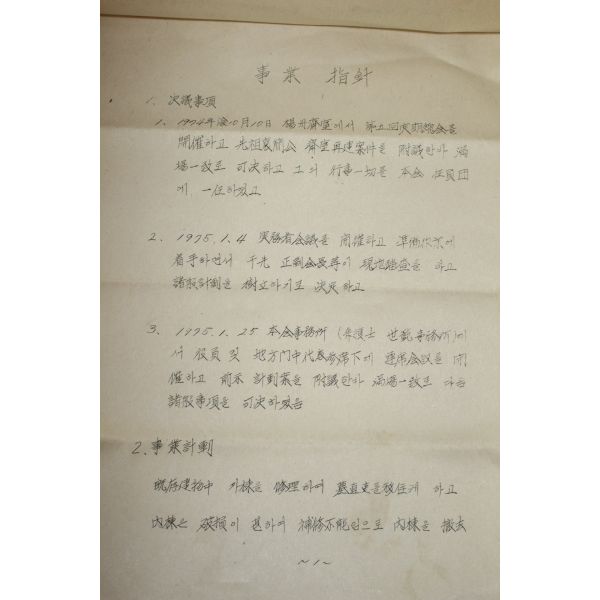 事業 指針
1. 決議事項
1. 1974年 陰10月10日 楊州齋室에서 第五回定期總会를
開催하고 先祖襄簡公 齋室再建案件을 附議한바 滿
場一致로 可決하고 그의 行事一切을 本会 任員団
에 一任하였고
2. 1975.1.4 実務者会議를 開催하고 準備作業에
着手하면서 于先 正副会長等이 現地踏査를 하고
諸般計劃을 樹立하기로 決定하고
3. 1975.1.25 本会事務所 ( 世乾事務所)에
서 役員 및 地方門中代表参席下에 連席会議를 開
催하고 前示 計劃案을 附議한바 滿場一致로 다음
諸般事項을 可決하였음
2. 事業計劃
既存建物中 外棟을 修理하여 墓直吏를 移住케 하고
內棟은 破損이 甚하여 補修不能임으로 內棟을 撤去
~1~